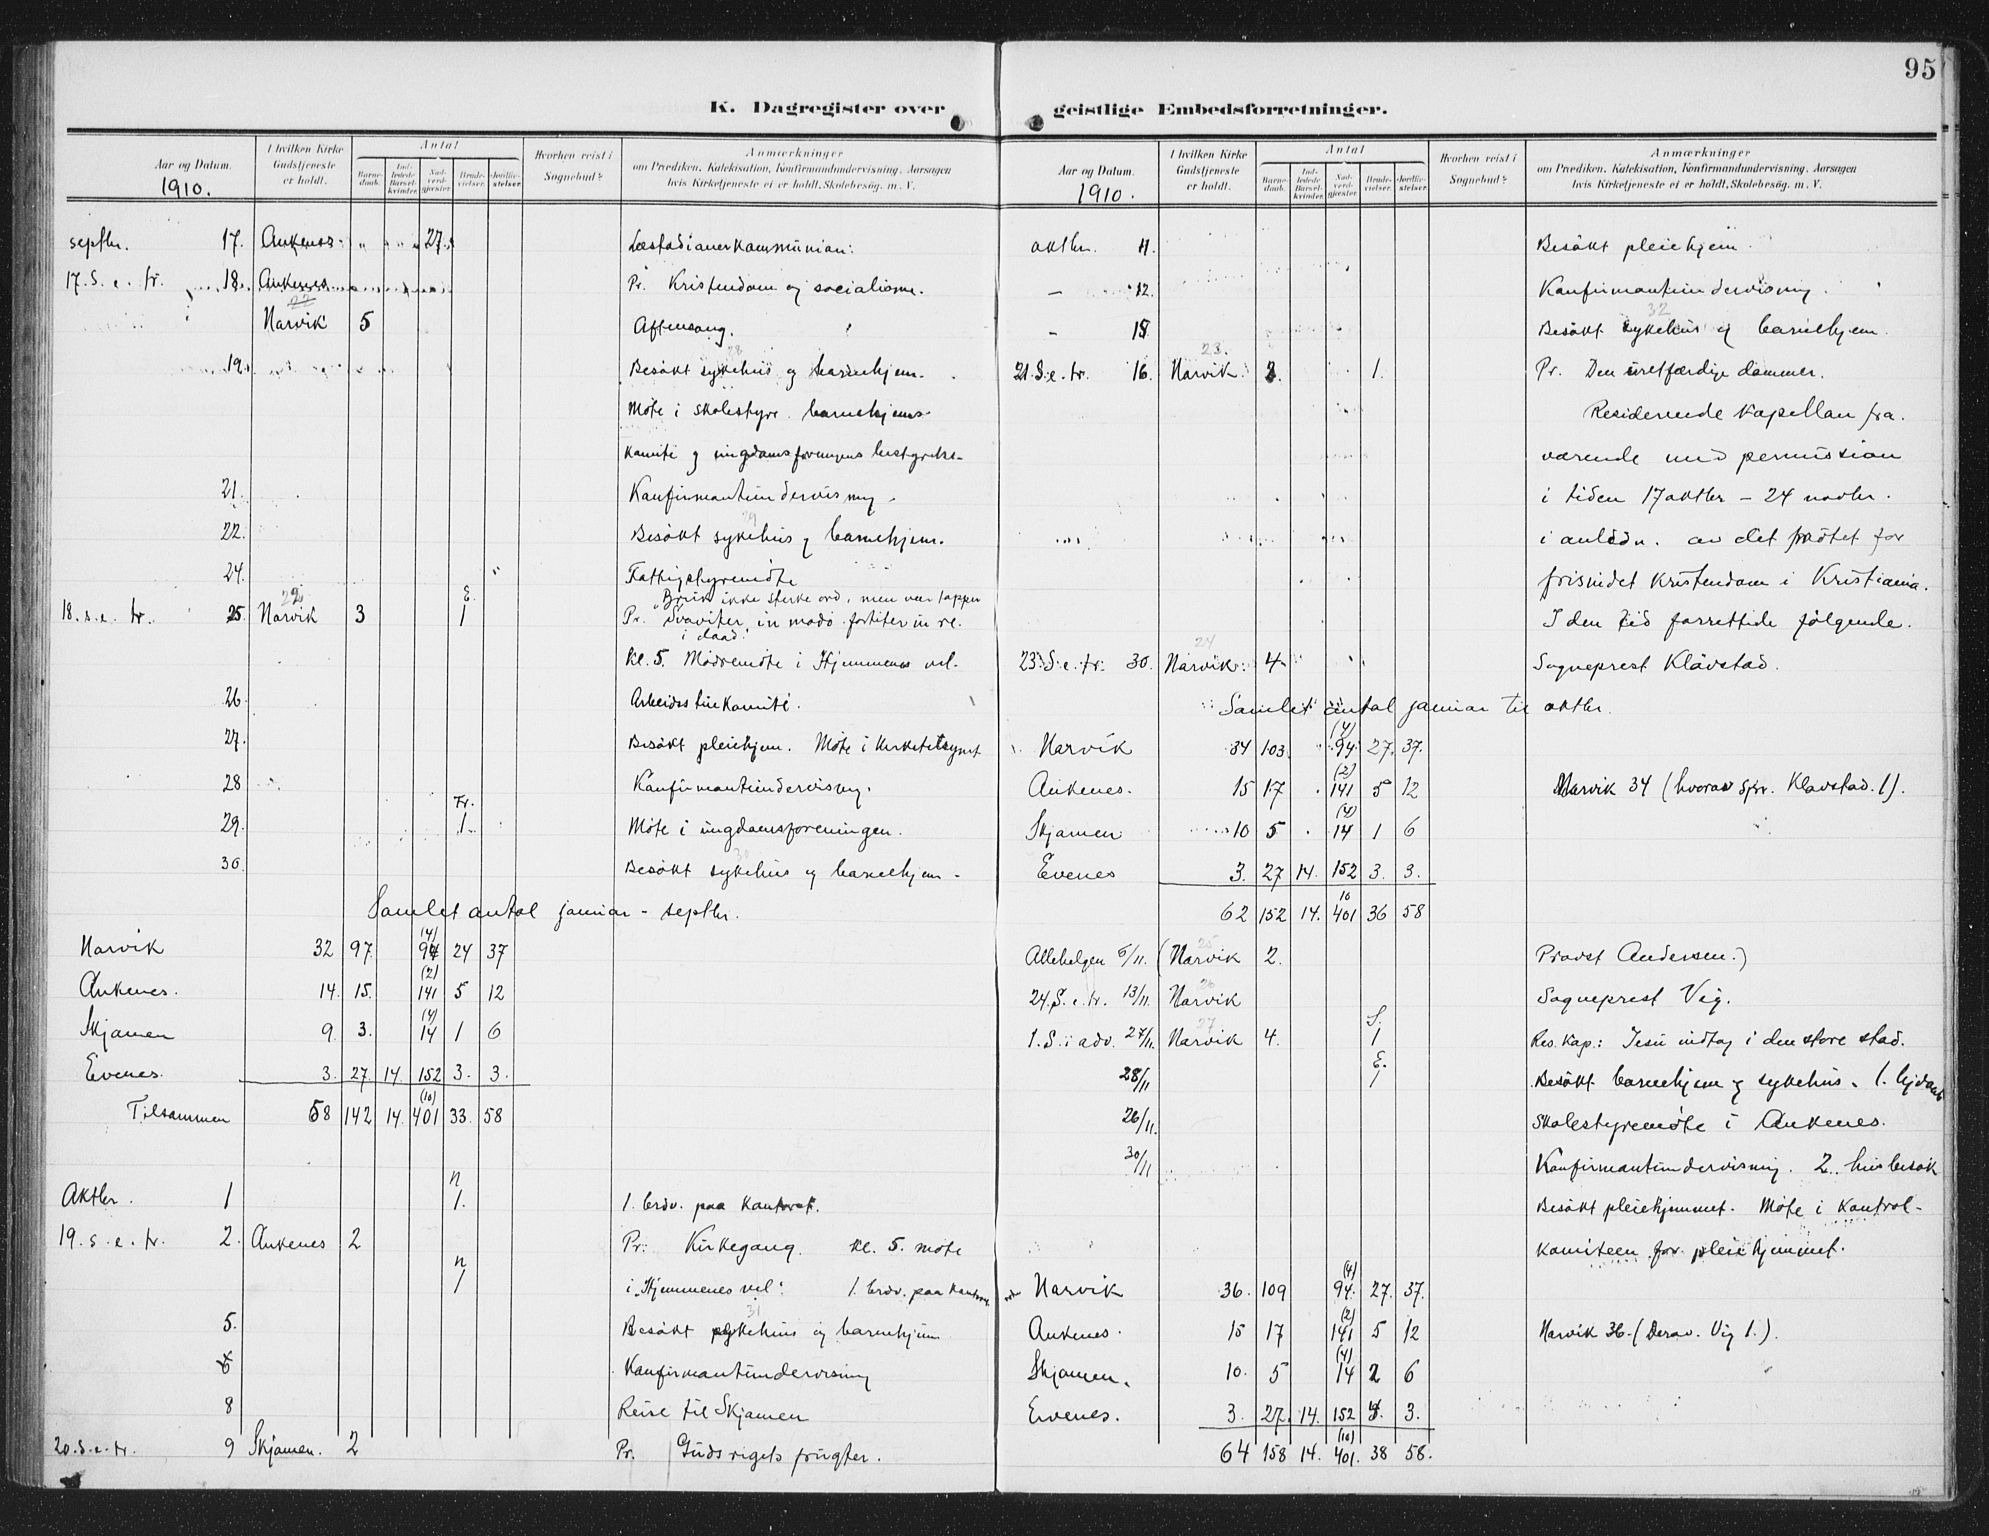 95
K. Dagregister over geistlige Embedsforretninger.
Aar og Datum.
1910.
I hvilken Kirke Gudstjeneste er holdt.
Antal
Barnedaab.
Indledede Barselkvinder.
Nadverdgjester.
Brudevielser.
Jordfæstelser.
Hvorhen reist i Sognebud?
Anmærkninger
om Prædiken, Katekisation, Konfirmandundervisning, Aarsagen
hvis Kirketjeneste ei er holdt, Skolebesøg. m. V.
septbr. 17. Ankenes 27. Læstadianerkommunion.
17. S. e. tr. 18. Ankenes Pr. Kristendom og socialisme.
22
Narvik 5 Aftensang.
28
19. Besøkt sykehus og barnehjem.
Møte i skolestyre, barnehjems-
komite og ungdomsforeningens bestyrelse.
21. Konfirmantundervisning.
29
22. Besøkt sykehus og barnehjem.
24. Fattigstyremøte
"Bruk ikke sterke ord, men vær tapper
18. s. e. tr. 25 Narvik 3 E. 1 Pr. Svaviter in modo fortiter in re.
i daad."
Kl. 5. Mødremøte i Hjemmenes vel.
26. Arbeidsstuekomité.
27. Besøkt pleiehjem. Møte i kirketilsynet
28 Konfirmantundervisning.
29. Fr. 1. Møte i ungdomsforeningen.
30
30. Besøkt sykehus og barnehjem.
Samlet antal januar - septbr.
Narvik 32 97. (4) 94 24 37
Ankenes. 14. 15. (2) 141 5 12
Skjomen 9. 3. (4) 14 1 6
Evenes. 3. 27. 14. 152 3. 3.
Tilsammen 58 142 14. (10) 401 33. 58
Oktbr. 1 n 1. 1. brdv. paa kontoret.
19. s. e. tr. 2. Ankenes 2 Pr. Kirkegang. Kl. 5. møte
n 1 i "Hjemmenes vel." 1. brdv. paa kontoret
31
5. Besøkt sykehus og barnehjem
6 Konfirmantundervisning
8 Reise til Skjomen
20. s. e. tr. 9 Skjomen. 2 Pr. Guds rigets frugter.
Aar og Datum.
1910.
I hvilken Kirke Gudstjeneste er holdt.
Antal
Barnedaab.
Indledede Barselkvinder.
Nadverdgjester.
Brudevielser.
Jordfæstelser.
Hvorhen reist i Sognebud?
Anmærkninger
om Prædiken, Katekisation, Konfirmandundervisning, Aarsagen
hvis Kirketjeneste ei er holdt, Skolebesøg. m. V.
oktbr. 11. Besøkt pleiehjem.
– 12. Konfirmantundervisning.
32
– 15 Besøkt sykehus og barnehjem
23.
21. S. e. tr. 16. Narvik 3. 1. Pr. Den uretfærdige dommer.
Residerende kapellan fra-
værende med permission
i tiden 17 oktbr – 24 novbr.
i anledn. av det møtet for
frisindet kristendom i Kristiania.
I den tid forrettede følgende.
24
23. S. e. tr. 30. Narvik 4 Sogneprest Klavstad.
Samlet antal januar til oktbr.
Narvik 34 103. (4) 94. 27. 37.
Ankenes. 15 17 (2) 141 5 12 Narvik 34 (hvorav Spr. Klavstad. 1).
Skjomen 10 5 (4) 14 1 6
Evenes 3. 27 14. 152 3. 3.
62 152 14. 10 401 36 58
25
Allehelgen 6/11. (Narvik 2. Provst Andersen.)
26
24. S. e. tr. 13/11. Narvik Sogneprest Vig.
27
1. S. i adv. 27/11. Narvik 4. S. 1 Res. Kap.: Jesu indtog i den store stad.
28/11 E. 1 Besøkt barnehjem og sykehus. 1. hjdaab
26/11. Skolestyremøte i Ankenes.
30/11 Konfirmantundervisning. 2 husbesøk
Besøkt pleiehjemmet. Møte i kontrol-
komiteen for pleiehjemmet.
Narvik 36. 109 (4) 94. 27. 37.
Ankenes. 15 17 (2) 141 5 12 Narvik 36. (Derav. Vig 1.).
Skjomen. 10. 5 (4) 14 2 6
Evenes. 3. 27. 14. 152 3.
64 158 14. (10) 401. 38 58.